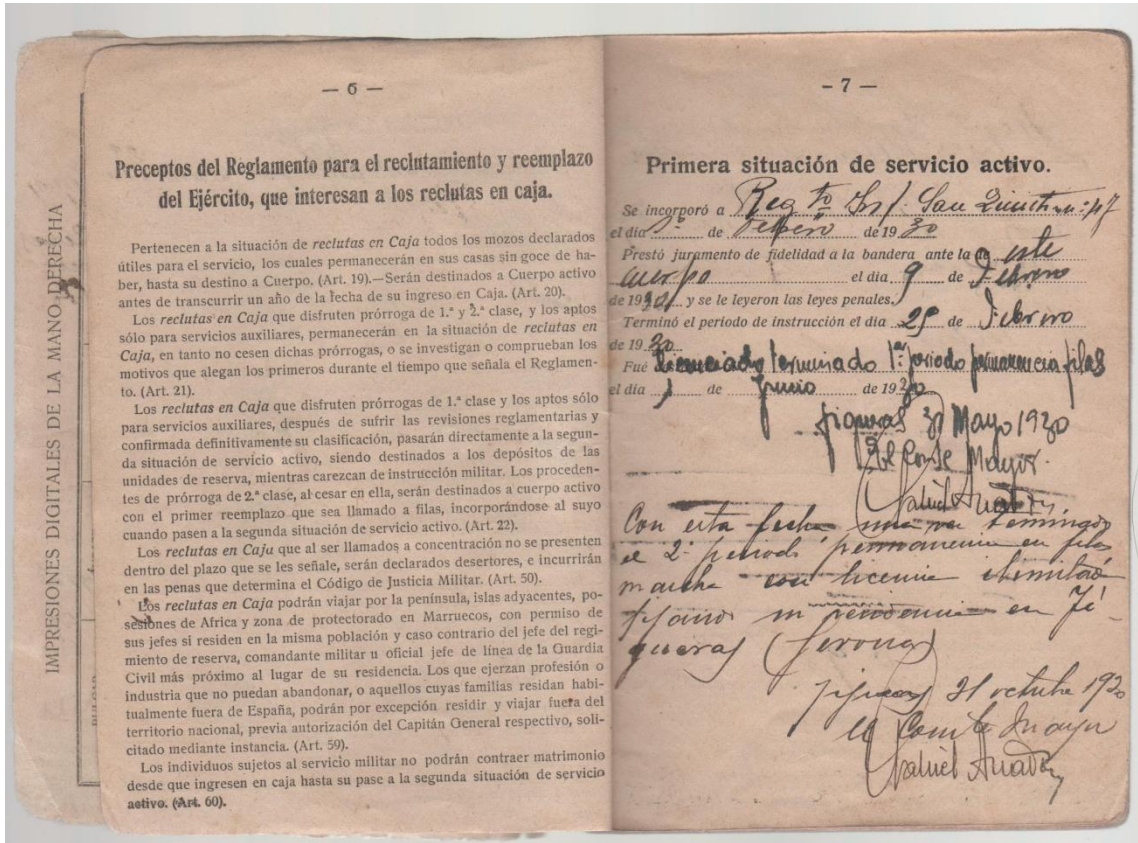 IMPRESIONES DIGITALES DE LA MANO DERECHA
— 6 —
Preceptos del Reglamento para el reclutamiento y reemplazo
del Ejército, que interesan a los reclutas en caja.
Pertenecen a la situación de reclutas en Caja todos los mozos declarados
útiles para el servicio, los cuales permanecerán en sus casas sin goce de ha-
ber, hasta su destino a Cuerpo. (Art. 19).—Serán destinados a Cuerpo activo
antes de transcurrir un año de la fecha de su ingreso en Caja. (Art. 20).
Los reclutas en Caja que disfruten prórroga de 1.ª y 2.ª clase, y los aptos
sólo para servicios auxiliares, permanecerán en la situación de reclutas en
Caja, en tanto no cesen dichas prórrogas, o se investigan o comprueban los
motivos que alegan los primeros durante el tiempo que señala el Reglamen-
to. (Art. 21).
Los reclutas en Caja que disfruten prórrogas de 1.ª clase y los aptos sólo
para servicios auxiliares, después de sufrir las revisiones reglamentarias y
confirmada definitivamente su clasificación, pasarán directamente a la segun-
da situación de servicio activo, siendo destinados a los depósitos de las
unidades de reserva, mientras carezcan de instrucción militar. Los proceden-
tes de prórroga de 2.ª clase, al cesar en ella, serán destinados a cuerpo activo
con el primer reemplazo que sea llamado a filas, incorporándose al suyo
cuando pasen a la segunda situación de servicio activo. (Art. 22).
Los reclutas en Caja que al ser llamados a concentración no se presenten
dentro del plazo que se les señale, serán declarados desertores, e incurrirán
en las penas que determina el Código de Justicia Militar. (Art. 50).
Los reclutas en Caja podrán viajar por la península, islas adyacentes, po-
sesiones de Africa y zona de protectorado en Marruecos, con permiso de
sus jefes si residen en la misma población y caso contrario del jefe del regi-
miento de reserva, comandante militar u oficial jefe de línea de la Guardia
Civil más próximo al lugar de su residencia. Los que ejerzan profesión o
industria que no puedan abandonar, o aquellos cuyas familias residan habi-
tualmente fuera de España, podrán por excepción residir y viajar fuera del
territorio nacional, previa autorización del Capitán General respectivo, soli-
citado mediante instancia. (Art. 59).
Los individuos sujetos al servicio militar no podrán contraer matrimonio
desde que ingresen en caja hasta su pase a la segunda situación de servicio
activo. (Art. 60).
— 7 —
Primera situación de servicio activo.
Se incorporó a Regto Inf. San Quintin nº 47
el día 1º de Febrero de 1930
Prestó juramento de fidelidad a la bandera ante la de este
cuerpo el día 9 de Febrero
de 1930 y se le leyeron las leyes penales.
Terminó el periodo de instrucción el día 25 de Febrero
de 1930
Fué licenciado terminado 1er periodo permanencia filas
el día 1 de Junio de 1930
Figueras 31 Mayo 1930
El Comte Mayor.
Con esta fecha una vez terminado
el 2º periodo permanencia en filas
marcha con licencia ilimitada
fijando su residencia en Fi-
gueras (Gerona)
Figueras 31 octubre 1930
El Comte Mayor